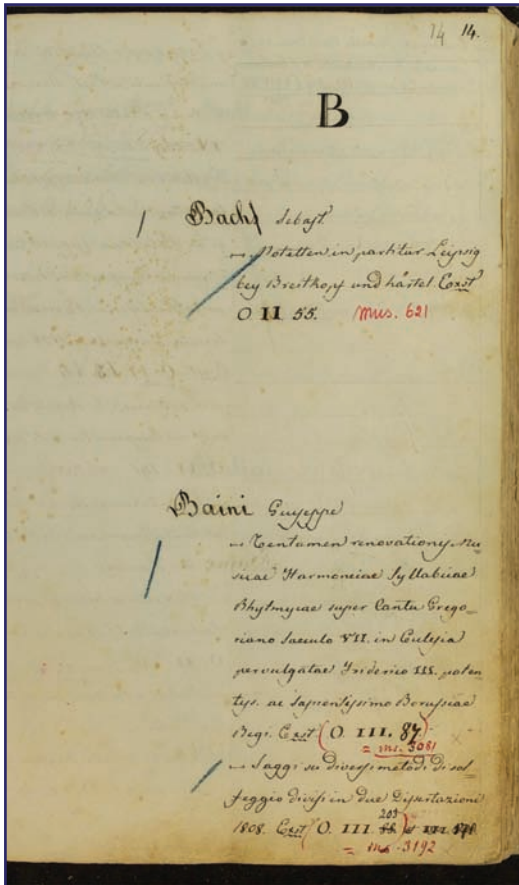 14 14.
B
Bach Sebast.
— Motetten in partitur Leipsig
bey Breitkopf und härtel. Exst
O II 55. Mus. 621
Baini Guiseppe
— Tentamen renovationis Mu-
sicae Harmonicae Syllabicae
Rhytmicae super Cantu Grego-
riano saeculo VII. in Ecclesia
pervulgatae Friderico III. poten-
tiss. ac sapientissimo Borussiae
Regi. Exst (O. III. 87)
= ms. 3081
— Saggi su diversi metodi di sol-
feggio divisi in due Dissertazioni
203
1808. Exst (O. III. 88)
= ms. 3192